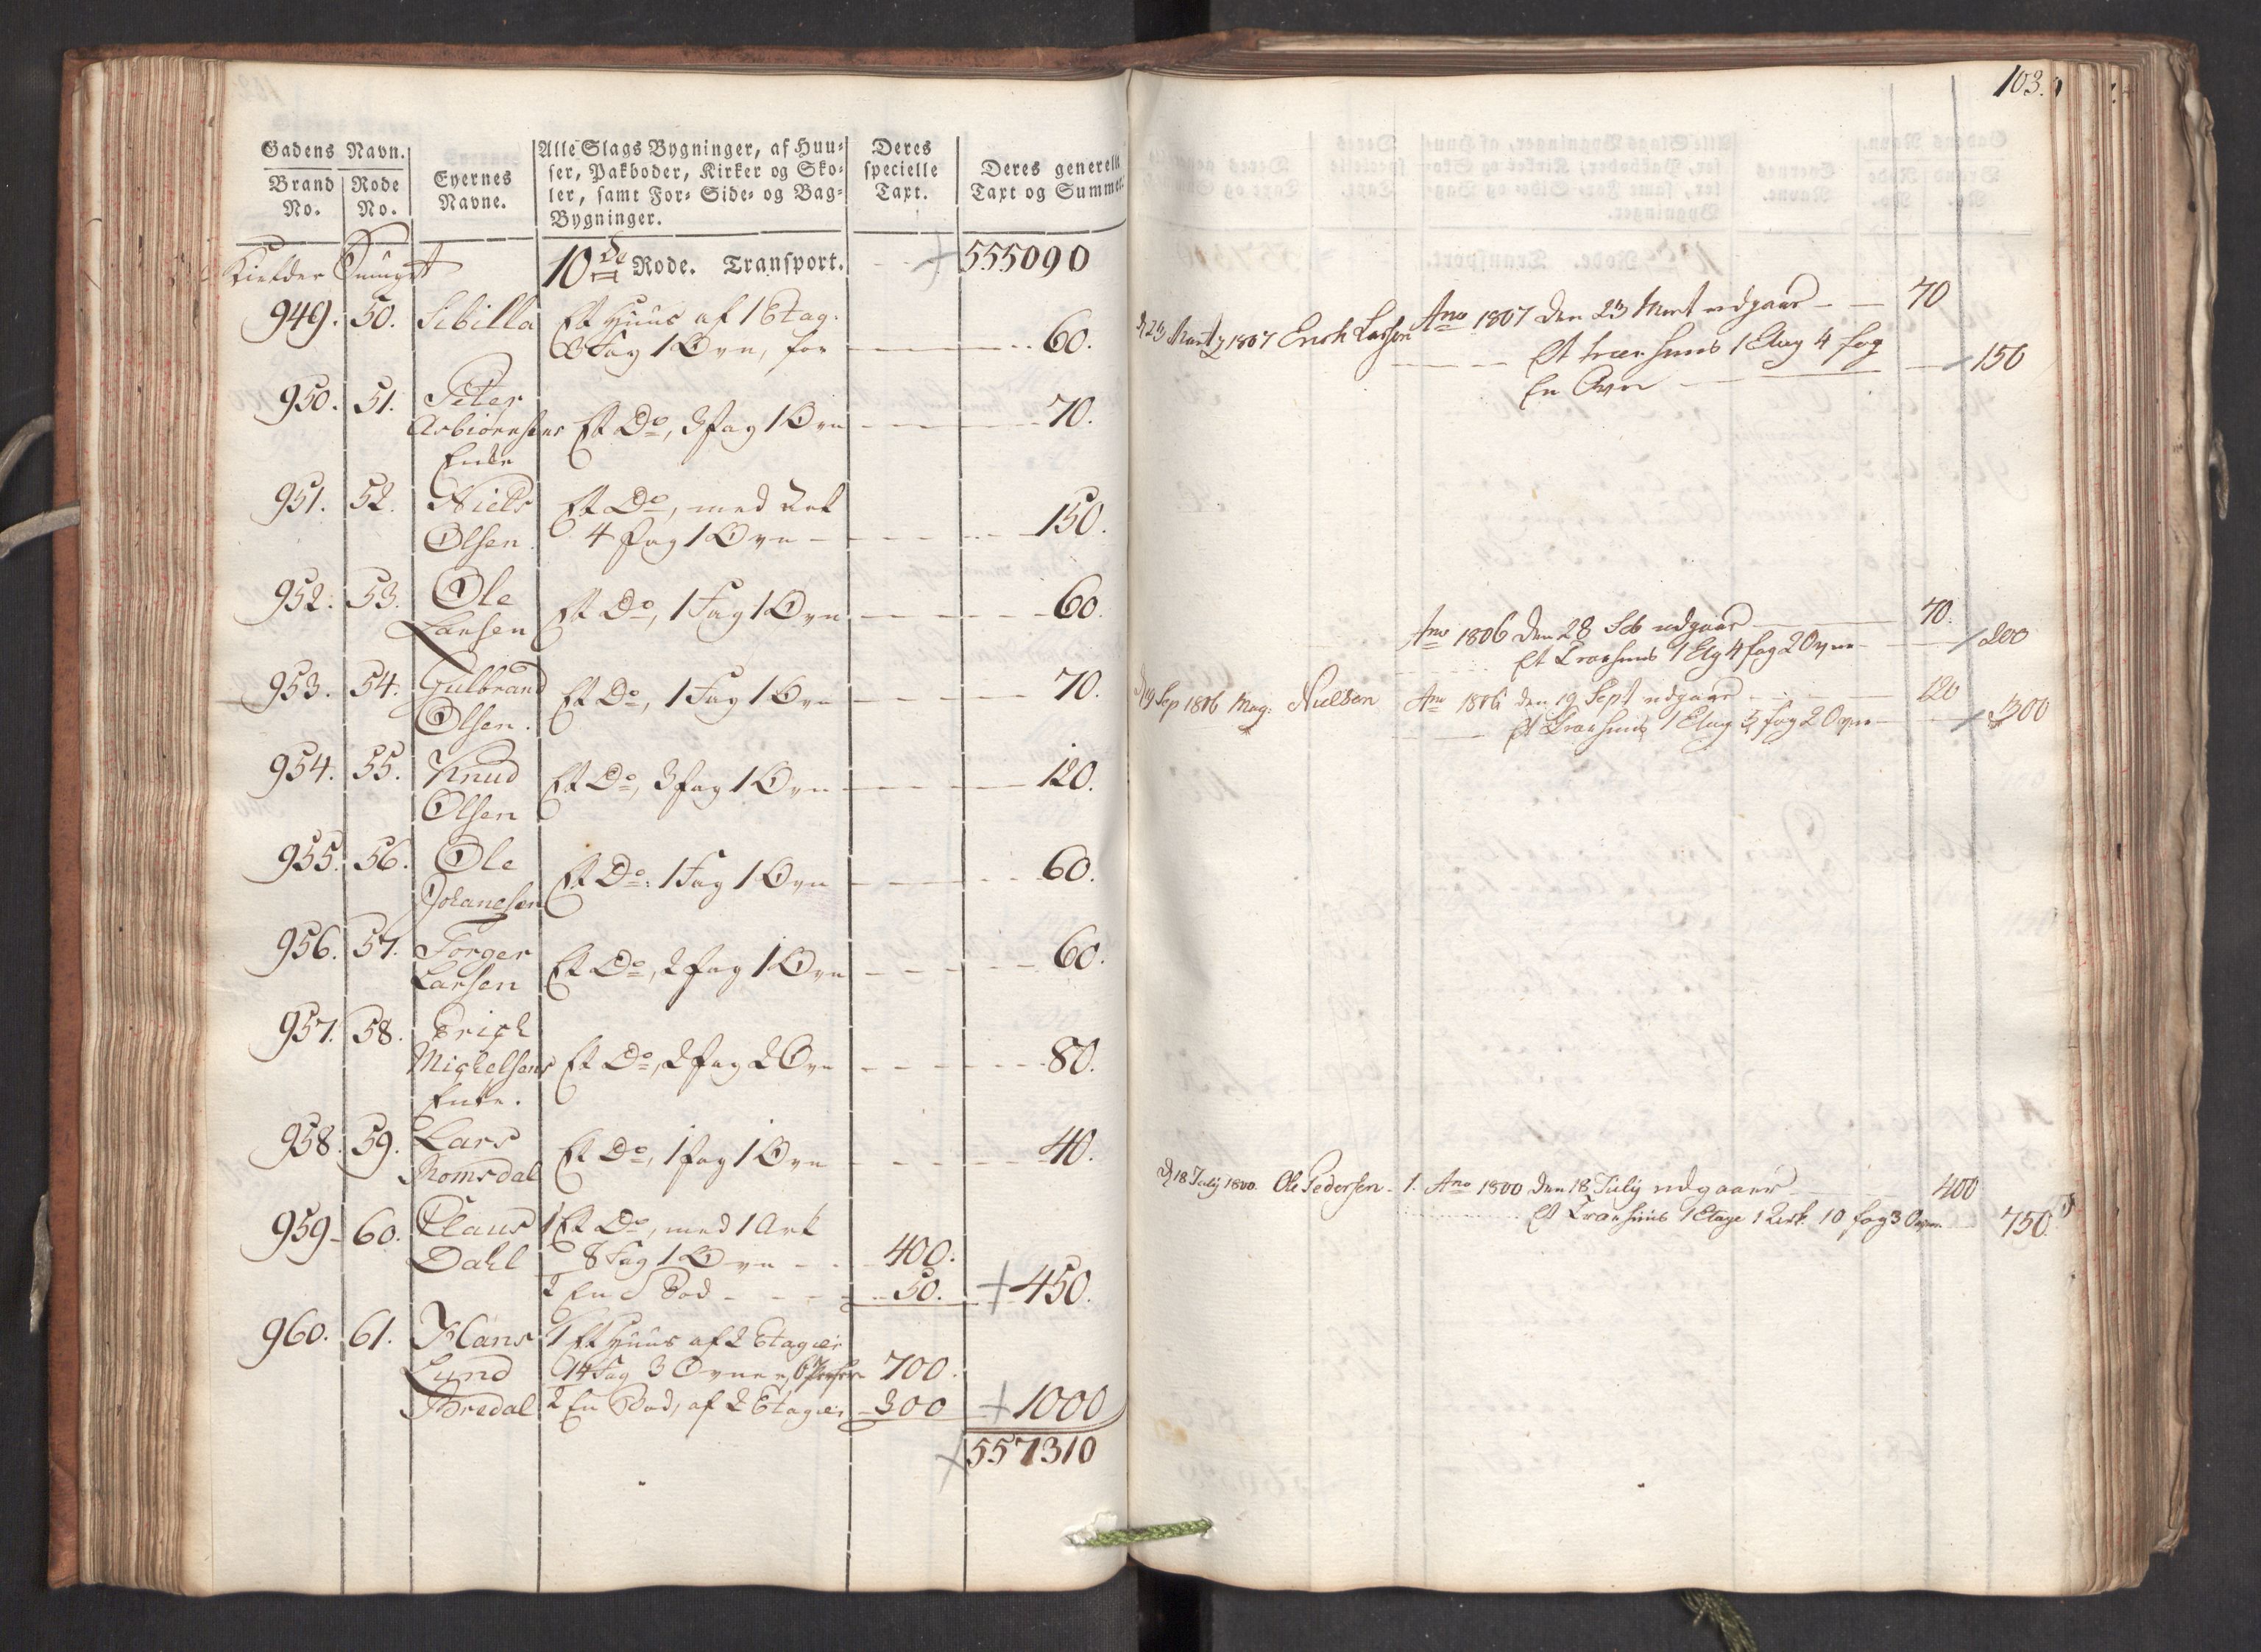 Gadens Navn.
Brand No.
Rode No.
Eyernes Navne.
Alle Slags Bygninger, af Huu-
ser, Pakboder, Kirker og Sko-
ler, samt For- Side- og Bag-
Bygninger.
Deres
specielle
Taxt.
Deres generelle
Taxt og Summer.
10de Rode. Transport. 555090
949. 50. Sibilla Et Huus af 1 Etag.
3 Fag 1 Ovn, for 60.
950. 51. Peter
Asbiørnsens Et Do, 3 fag 1 Ovn 70.
Enke
951. 52. Niels Et Do, med Ark
Olsen. 4 fag 1 Ovn 150.
952. 53. Ole
Larsen Et Do, 1 Fag 1 Ovn 60.
953. 54. Gulbrand Et Do, 1 Fag 1 Ovn 70.
Olsen.
954. 55. Knud Et Do, 3 fag 1 Ovn 120.
Olsen
955. 56. Ole Et Do, 1 Fag 1 Ovn 60.
Johanesen
956. 57. Torger
Larsen Et Do, 2 fag 1 Ovn 60.
957. 58. Erich
Michelsens Et Do, 2 fag 2 Ovn 80.
Enke.
958. 59. Lars Et Do, 1 fag 1 Ovn 40.
Romsdal
959 60. Claus 1 Et Do, med 1 Ark
Dahl 8 Fag 1 Ovn 400.
2 En Bod 50. 450.
960. 61. Hans 1 Et Huus af 2 Etager
Lund 14 Fag 3 Ovne 700.
Bredal 2 En Bod, af 2 Etager 300 1000
557310
103.
d 23 Marty 1807 Erich Larsen Ano 1807 den 23 Mart udgaar 70
Et træhuus 1 Etag 4 fag
En Ovn 150
Ano 1806 den 28 udgaar 70.
Et Træehuus 1 Etg 4 fag 2 Ovne 200
d 19 Sep 1806 Mag: Nielsen Ano 1806 den 19 Sept udgaar 120
Et Træehuus 1 Etag 5 fag 2 Ovne 300
d 18 July 1800 Ole Pedersen 1. Ano 1800 den 18 July udgaaer 400
Et Træehuus 1 Etage 1 Ark. 10 fag 3 Ovne 750.